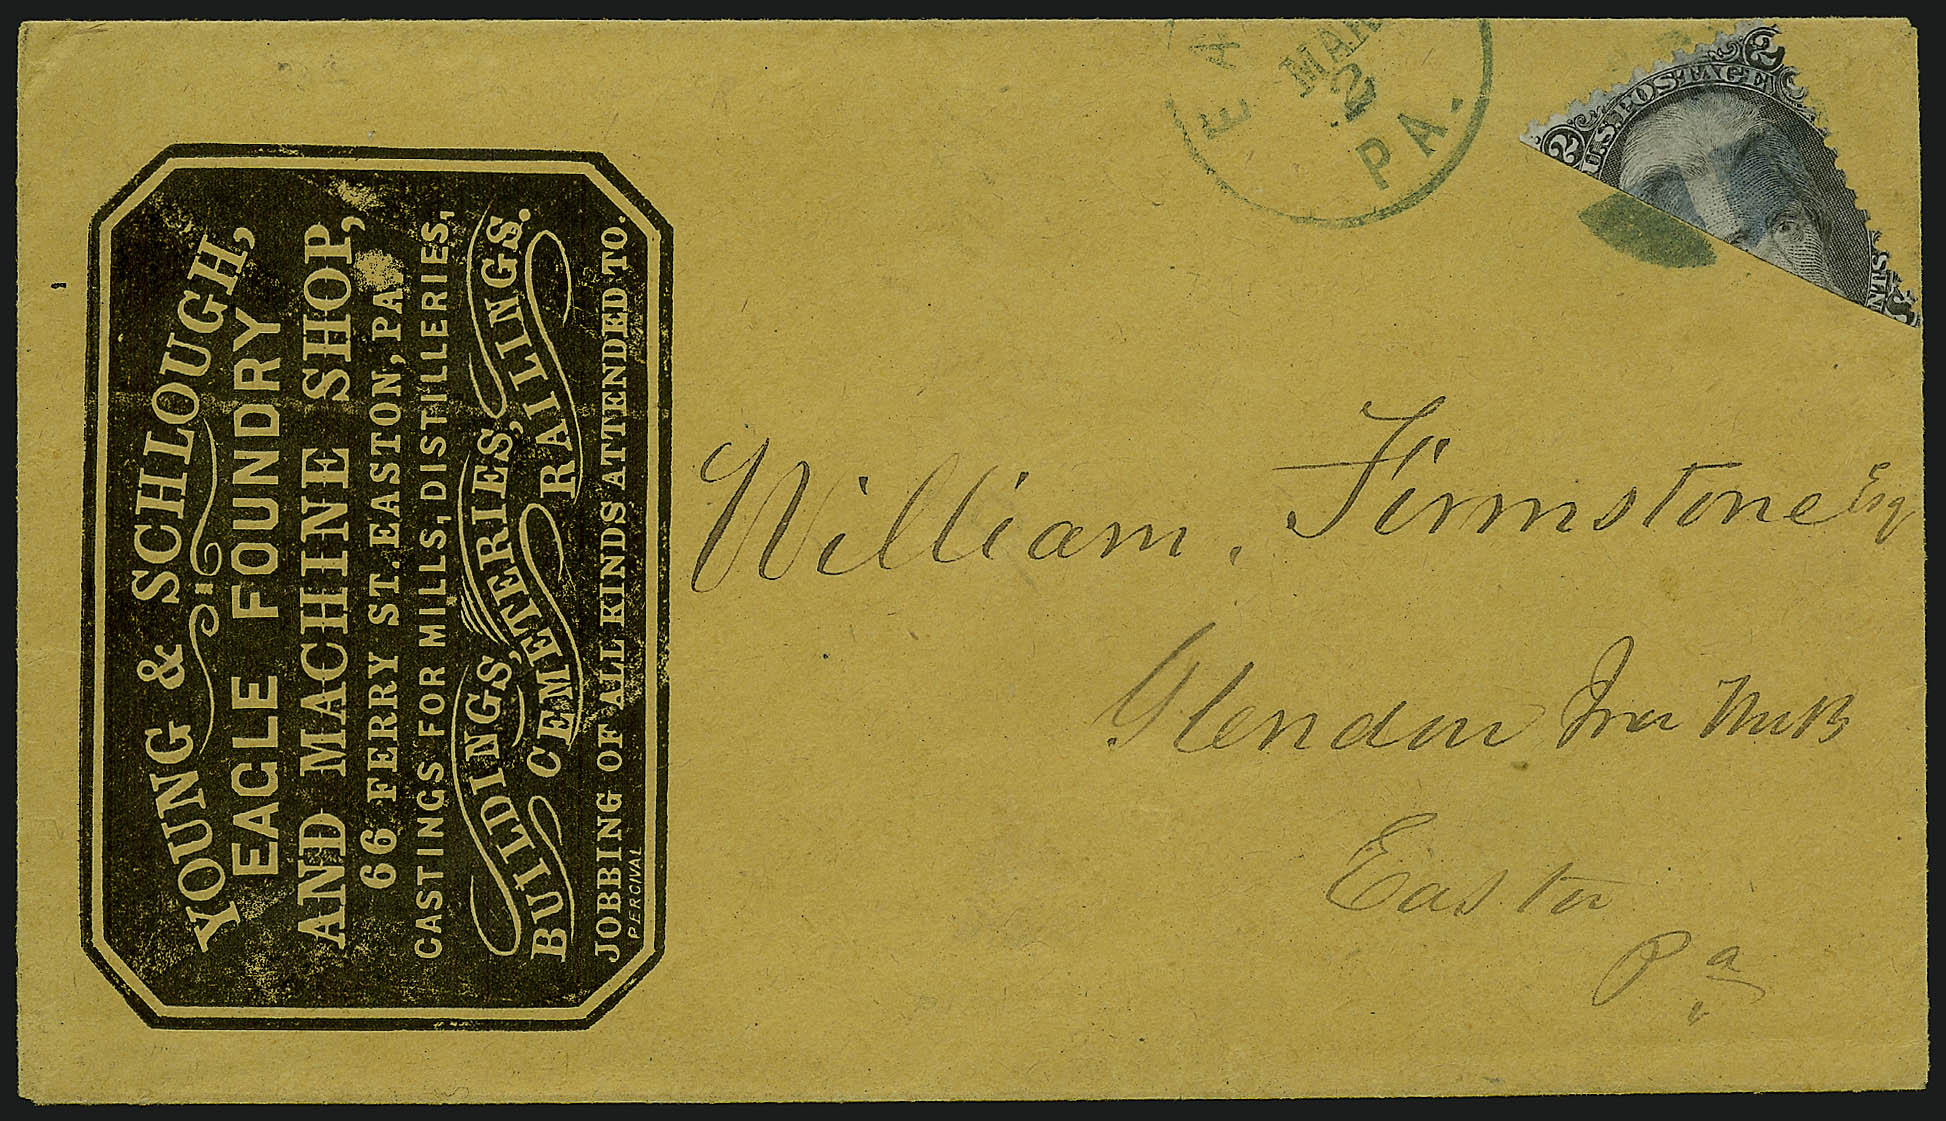 YOUNG & SCHLOUGH,
EAGLE FOUNDRY
AND MACHINE SHOP,
66 FERRY ST. EASTON, PA
CASTINGS FOR MILLS, DISTILLERIES,
BUILDINGS, CEMETERIES, RAILINGS.
JOBBING OF ALL KINDS ATTENDED TO.
PERCIVAL
EA
MAR
2
PA.
2 U.S. POSTAGE 2
NTS
William Firmstone Esq
Glendon Iron
Easton
Pa